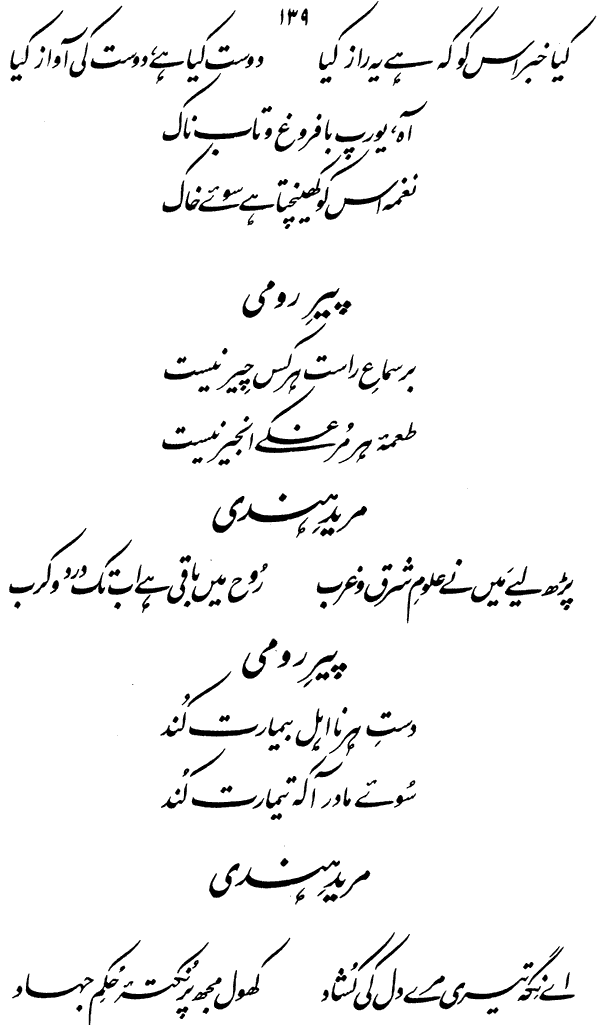 ۱۳۹
کیا خبر اس کو کہ ہے یہ راز کیا دوست کیا ہے، دوست کی آواز کیا
آہ، یورپ با فروغ و تاب ناک
نغمہ اس کو کھینچتا ہے سوئے خاک
پیرِ رومی
بر سماعِ راست ہر کس چِیر نیست
طعمۂ ہر مُرغکے انجیر نیست
مریدِ ہندی
پڑھ لیے مَیں نے علومِ شرق و غرب رُوح میں باقی ہے اب تک درد و کرب
پیرِ رومی
دستِ ہر نا اہل بیمارت کُند
سُوئے مادر آ کہ تیمارت کُند
مریدِ ہندی
اے نِگہ تیری مرے دل کی کُشاد کھول مجھ پر نُکتۂ حُکمِ جہاد